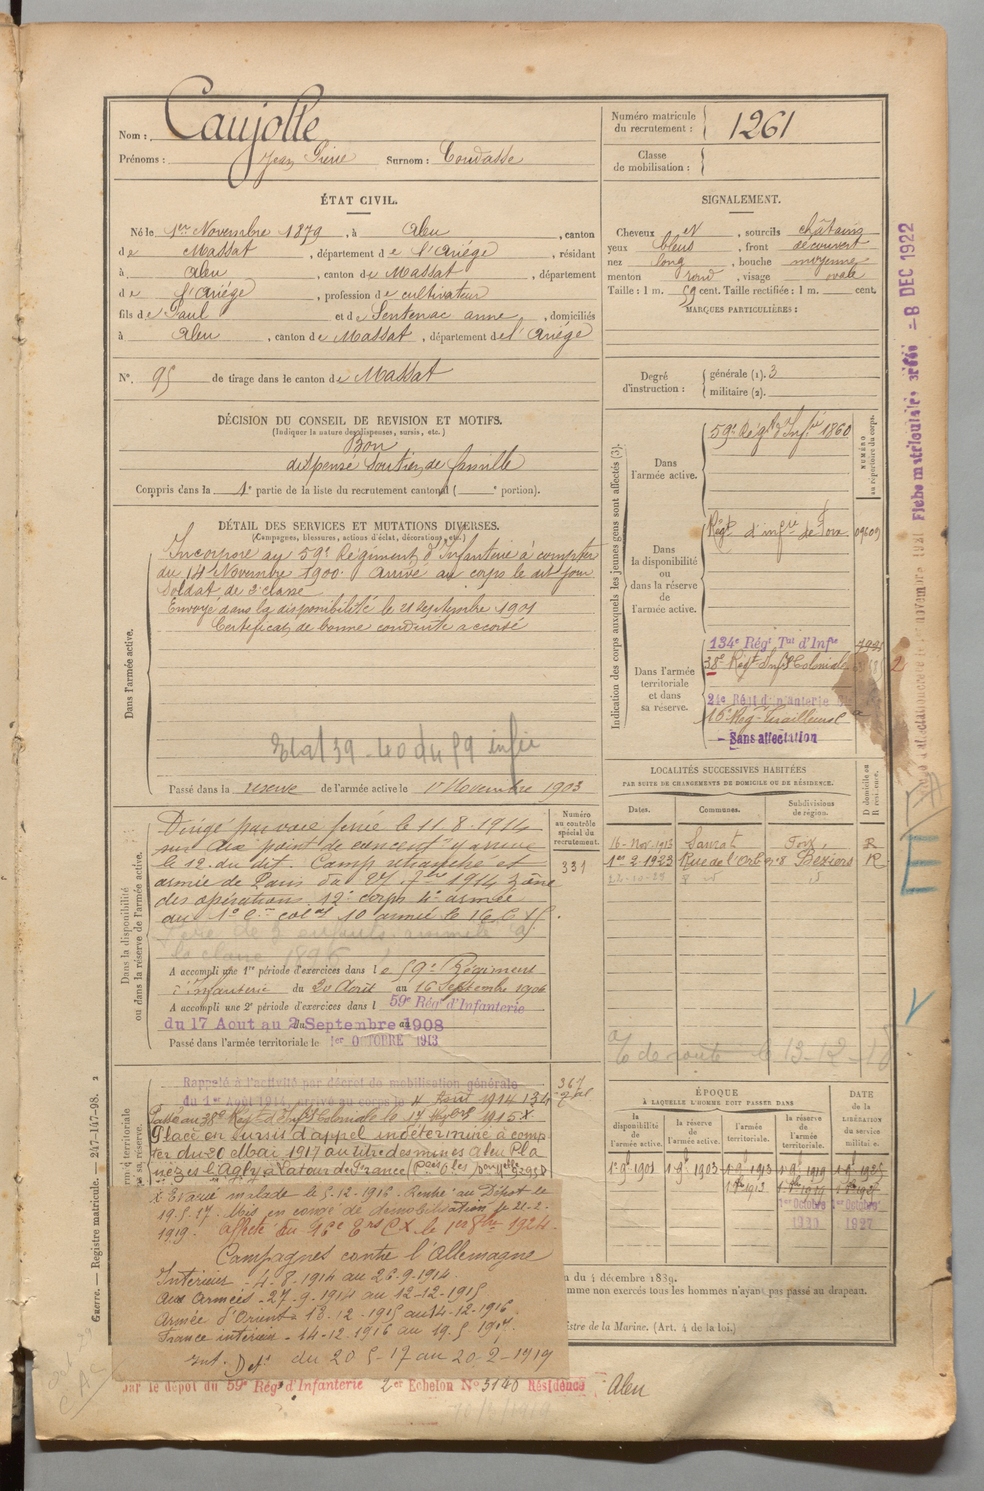 Nom : Caujolle
Prénoms : Jean Pierre Surnom : Coudasse
Numéro matricule du recrutement : 1261
Classe de mobilisation :
ÉTAT CIVIL.
Né le 1er Novembre 1879, à Aleu, canton
de Massat, département de l'Ariége, résidant
à Aleu, canton de Massat, département
de l'Ariége, profession de cultivateur
fils de Paul et de Sentenac anne, domiciliés
à Aleu, canton de Massat, département de l'Ariége
N°. 95 de tirage dans le canton de Massat
SIGNALEMENT.
Cheveux N, sourcils châtains
yeux bleus, front découvert
nez long, bouche moyenne
menton rond, visage ovale
Taille : 1 m. 59 cent. Taille rectifiée : 1 m. cent.
MARQUES PARTICULIÈRES :
Degré d'instruction : générale (1). 3
militaire (2).
DÉCISION DU CONSEIL DE REVISION ET MOTIFS.
(Indiquer la nature des dispenses, sursis, etc.)
Bon
dispensé Soutien de famille
Compris dans la 1e partie de la liste du recrutement cantonal ( e portion).
DÉTAIL DES SERVICES ET MUTATIONS DIVERSES.
(Campagnes, blessures, actions d'éclat, décorations, etc.)
Dans l'armée active.
Incorporé au 59e Régiment d'Infanterie à compter
du 14 Novembre 1900. Arrivé au corps le dit jour
Soldat de 2e classe
Envoyé dans la disponibilité le 21 Septembre 1901
Certificat de bonne conduite accordé
Etat 39-40 du 59 infie
Passé dans la réserve de l'armée active le 1er Novembre 1903
Indication des corps auxquels les jeunes gens sont affectés (3).
NUMÉRO au répertoire du corps.
Dans l'armée active.
59e Régt d'Infie 1860
Dans la disponibilité ou dans la réserve de l'armée active.
Régt d'infie de Foix
Dans l'armée territoriale et dans sa réserve.
134e Régt Tal d'Infie
38e Régt Infie Coloniale
24e Régt d'infanterie
16e Rég. Tirailleurs
- Sans affectation
Fiche matriculaire créée - 8 DEC 1922
LOCALITÉS SUCCESSIVES HABITÉES
PAR SUITE DE CHANGEMENTS DE DOMICILE OU DE RÉSIDENCE.
Dates. Communes. Subdivisions de région. D domicile ou R résidence.
16-Nov. 1913 Saurat Foix R
1er 2-1923 Rue de l'Orb n°8 Beziers R
Dans la disponibilité ou dans la réserve de l'armée active.
Numéro au contrôle spécial du recrutement.
331
Dirigé par voie ferrée le 11-8-1914
sur Aix point de concent. y arrivé
le 12 du dit. Camp retranché et
armée de Paris du 27 7bre 1914 zone
des opérations 12e corps 4e armée
au 1er Cie colal 10 armée le 16
Père de 2 enfants
la classe 1895
A accompli une 1re période d'exercices dans le 59e Régiment
d'Infanterie du 20 Août au 16 Septembre 1906
A accompli une 2e période d'exercices dans l 59e Rég d'Infanterie
du 17 Aout au 2 Septembre 1908
Passé dans l'armée territoriale le 1er OCTOBRE 1913
Rappelé à l'activité par décret de mobilisation générale
du 1er Août 1914, arrivé au corps le 4 Août 1914 134
Passé au 38e Régt d'Infie Coloniale le 17 1915 X
Placé en Sursis d'appel indéterminé à comp
ter du 20 Mai 1917 au titre des mines Aleu Pla
nèzes l'Agly à Latour de France
X Evacué malade le 5-12-1916. Rentré au Dépôt le
19-5-17. Mis en congé de démobilisation le 21-2-
1919. affecté au 16e le 1er 8bre 1924
Campagnes contre l'Allemagne
Intérieur - 4-8-1914 au 26-9-1914.
aux Armées - 27-9-1914 au 12-12-1915
Armée d'Orient - 13-12-1915 au 14-12-1916
France intérieur - 14-12-1916 au 19-5-1917.
Int. du 20 5-17 au 20-2-1919
ÉPOQUE
À LAQUELLE L'HOMME DOIT PASSER DANS
la disponibilité de l'armée active. la réserve de l'armée active. l'armée territoriale. la réserve de l'armée territoriale. DATE de la LIBÉRATION du service militaire.
1-9bre 1901 1-9bre 1903 1-9bre 1913 1-9bre 1919 1-9bre 1925
1-8bre 1913
1er Octobre 1er Octobre
1920 1927
n du 4 décembre 1839.
mme non exercés tous les hommes n'ayant pas passé au drapeau.
istre de la Marine. (Art. 4 de la loi.)
par le dépôt du 59e Rég d'Infanterie 2er Echelon No 5140 Résidence Aleu
Guerre. — Registre matricule. — 247-147-98.